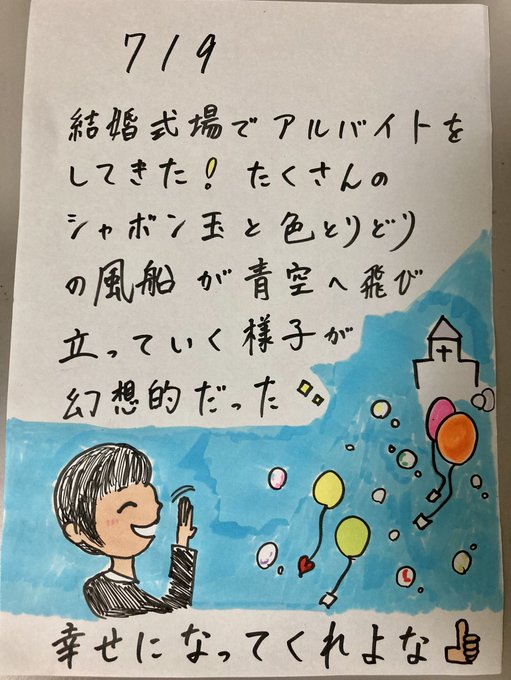 7/9
結婚式場でアルバイトを
してきた! たくさんの
シャボン玉と色とりどり
の風船が青空へ飛び
立っていく様子が
幻想的だった
幸せになってくれよな